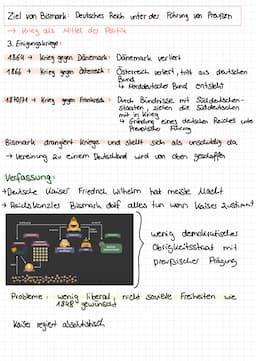 Ziel von Bismark: Deutsches Reich unter der Führung von Preußen
→ Krieg als Mittel der Politik
3. Einigungskriege:
1864 → Krieg gegen Dänemark: Dänemark verliert
1866 → Krieg gegen Österreich: Österreich verliert, tritt aus deutschen Bund
↳ Norddeutscher Bund entsteht
1870/71 → Krieg gegen Frankreich: Durch Bündnisse mit Süddeutschen-
staaten, ziehen die Süddeutschen
mit in Krieg
↳ Gründung eines deutschen Reiches unte
Preußischer Führung
Bismark drangiert Kriege und stellt sich als unschuldig da
→ Vereinung zu einem Deutschland wird von oben geschaffen
Verfassung:
→ Deutsche Kaiser Friedrich Wilhelm hat meiste Macht
→ Reichskanzler Bismark darf alles tun wenn Kaiser zustimmt
wenig demokratisches
Obrigkeitsstaat mit
preußischer Prägung
Probleme: wenig liberal, nicht soviele Freiheiten wie
1848 gewünscht
Kaiser regiert absolutistisch